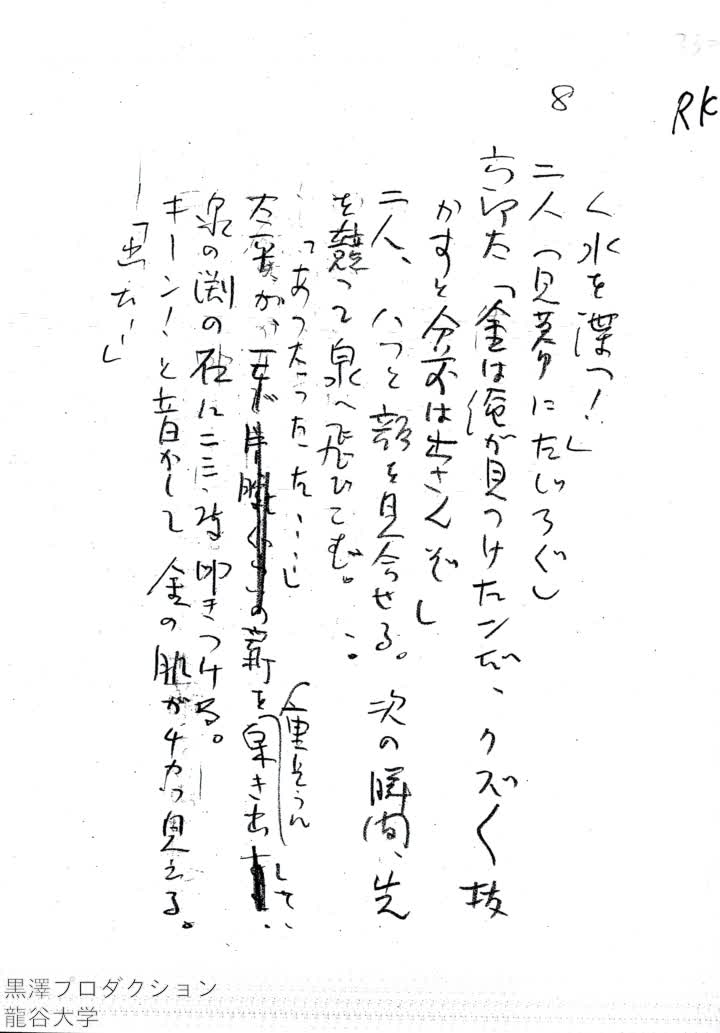 RK
8
く水を渫つ!」
二人の見幕にたじろぐ
六郎太「金は俺が見つけたンだ、クズ〱抜
かすと分前は出さんぞ」
二人、ハッと顔を見合せる。次の瞬間、先
を競って泉へ飛びこむ。
「あつたつたた……」
太平が、一本の薪を重そうに引き出して、
泉の渕の石に二三度叩きつける。
キーン!と音がして金の肌がチカッと見える。
「出た!」
黒澤プロダクション
龍谷大学